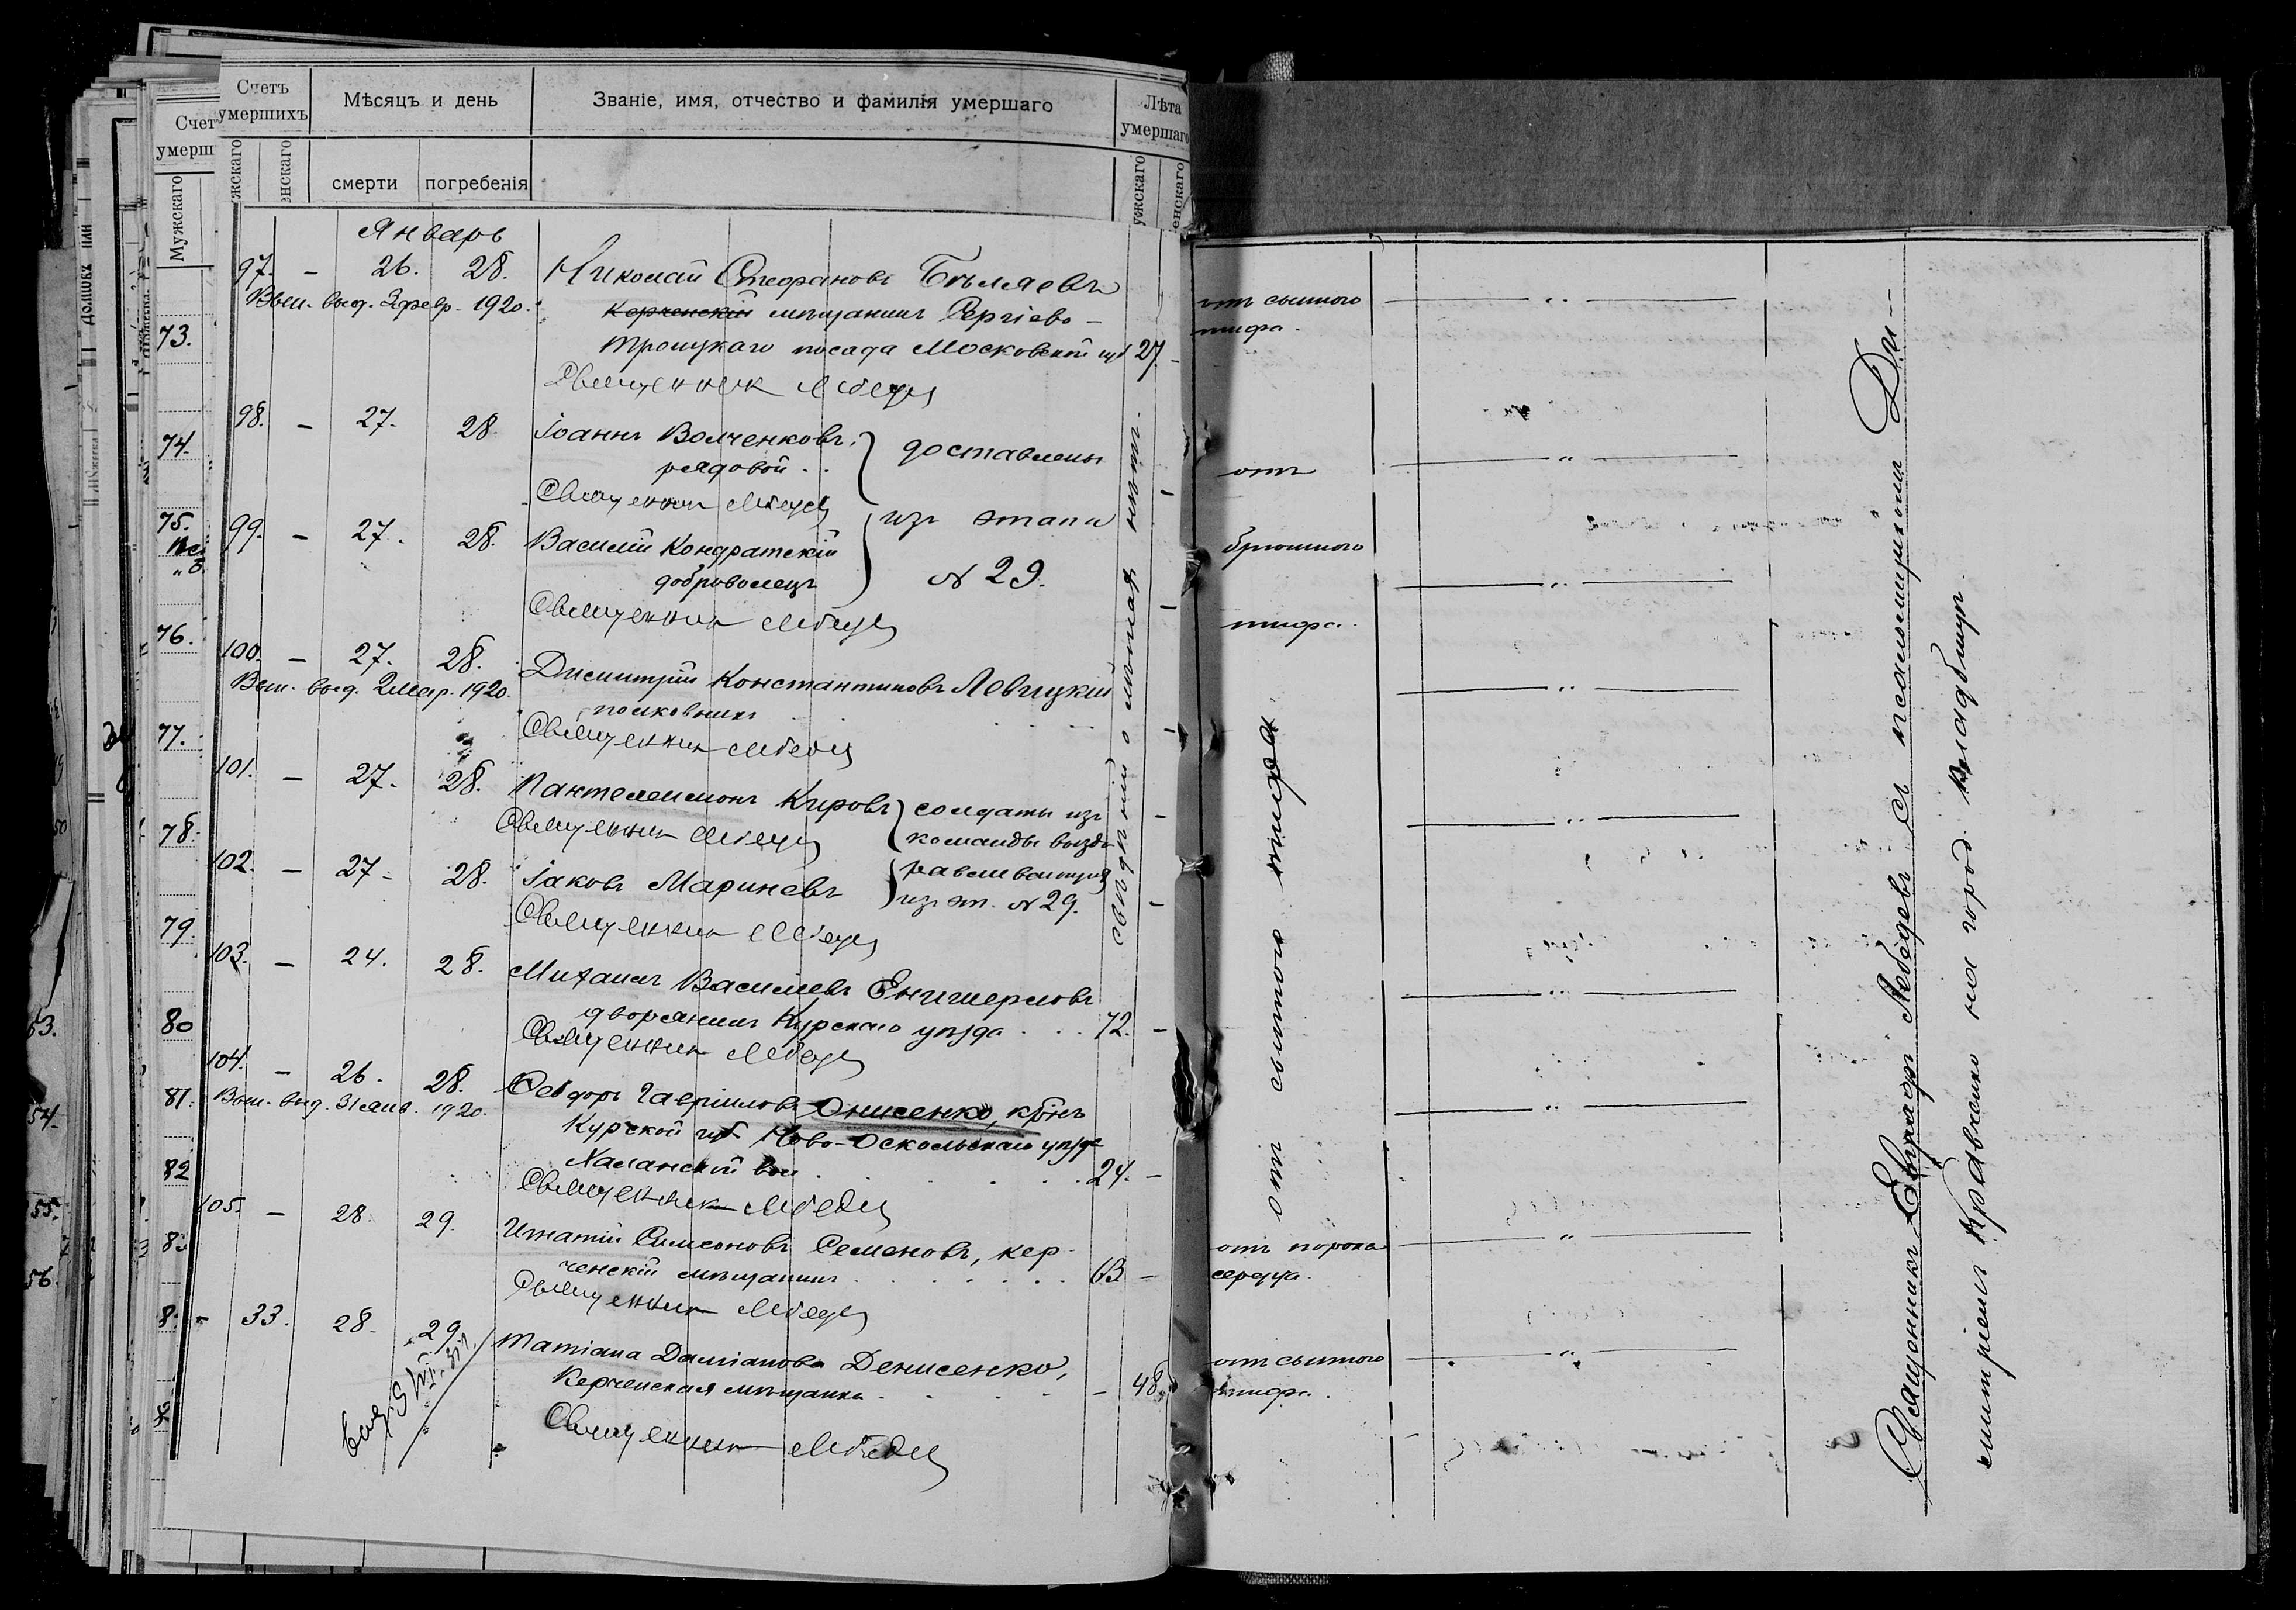 Счетъ умершихъ
Мѣсяцъ и день
Званіе, имя, отчество и фамилія умершаго
Лѣта умершаго
смерти
погребенія
Январь
97. – 26. 28. Николай Стефановъ Бѣляевъ
Вып. выд. 3 февр. 1920.
Керченскій мѣщанинъ Сергіево-
Троицкаго посада Московской губ 27. –
Священник Лебедев
98. – 27. 28. Іоаннъ Волченковъ.
рядовой . .
доставлены
Священник Лебедев
99. – 27. 28. Василій Кондратскій
доброволецъ
изъ этапа
№ 29.
Священник Лебедев
100. – 27. 28. Димитрій Константиновъ Левицкій
Вып. выд. 2 мар. 1920.
полковникъ
Священник Лебедев
101. – 27. 28. Пантелеимонъ Кировъ
Священник Лебедев
солдаты изъ
команды выздо
102. – 27. 28. Іаковъ Мариневъ
равливающих
изъ эт. № 29.
Священник Лебедев
103. – 24. 28. Михаилъ Василіевъ Енишерловъ
дворянинъ Курскаго уѣзда . . . 72. –
Священник Лебедев
104. – 26. 28. Ѳеодоръ Гавріиловъ Онисенко, кр-нъ
Вып. выд. 31 янв. 1920.
Курской губ. Ново-Оскольскаго уѣзда
Халанской вол. 24. –
Священник Лебедев
105. – 28. 29. Игнатій Симеоновъ Семеновъ, кер-
ченскій мѣщанинъ 63 –
Священник Лебедев
– 33. 28. 29. Татіана Даміанова Денисенко,
Керченская мѣщанка – 48.
Священник Лебедев
свѣдѣній о лѣтахъ нѣтъ.
73.
74.
75.
76.
77.
78.
79.
80
81.
82
53.
54.
55.
56.
отъ сыпного
тифа.
отъ
брюшного
тифа.
отъ сыпного тифа
отъ порока
сердца.
отъ сыпного
тифа.
Священникъ Евграфъ Лебедевъ съ псаломщикомъ Ди-
митріемъ Кравченко на город. кладбищѣ.